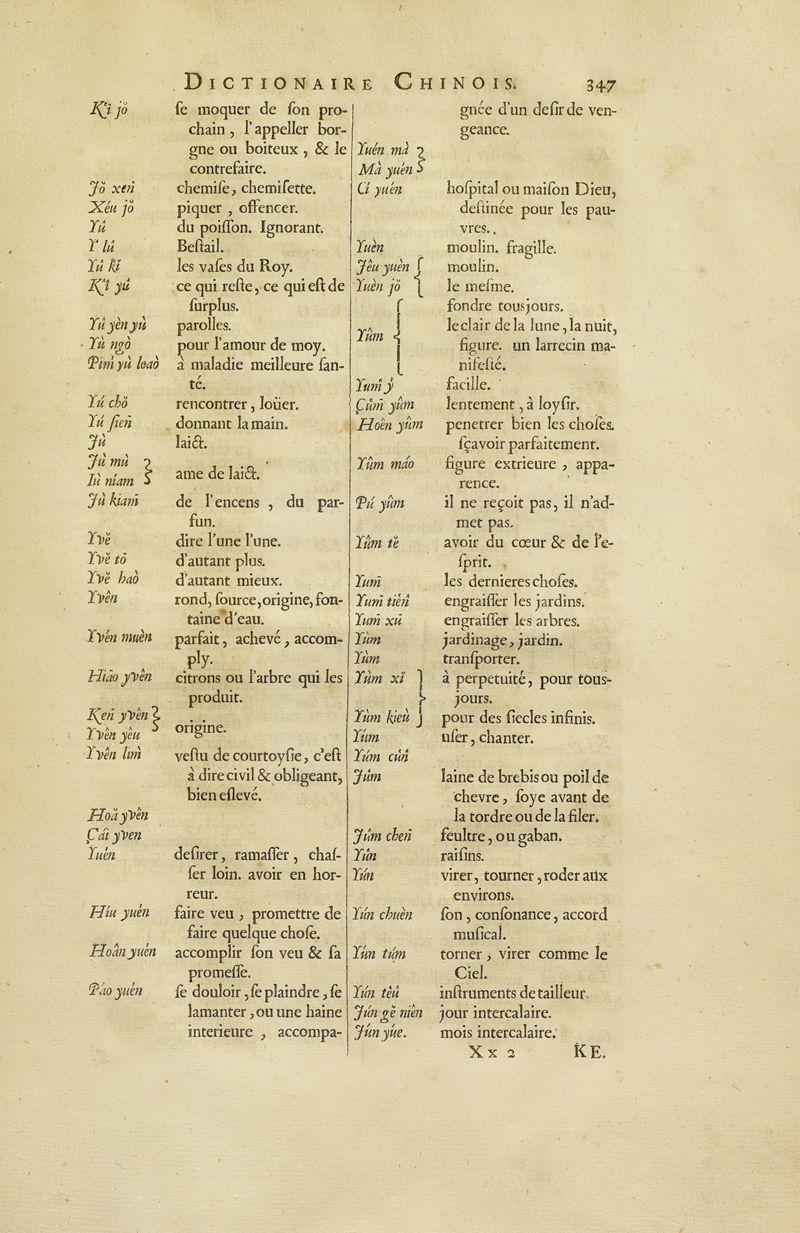 DICTIONAIRE CHINOIS. 347
K'i jŏ ſe moquer de ſon pro-
chain, l'appeller bor-
gne ou boiteux, & le
contrefaire.
Jŏ xeñ chemiſe, chemiſette.
Xéu jŏ piquer, offencer.
Yû du poiſſon. Ignorant.
Y lû Beſtail.
Yû k'î les vaſes du Roy.
K'î yû ce qui reſte, ce qui eſt de
ſurplus.
Yú yèn yù parolles.
Yù ngò pour l'amour de moy.
Pim̃ yù loaò à maladie meilleure ſan-
té.
Yú chŏ rencontrer, loüer.
Yú ſieñ donnant la main.
Jù laict.
Jù mù }
Iù niam } ame de laict.
Jù kiam̃ de l'encens, du par-
fun.
Yvĕ dire l'une l'une.
Yvĕ tō d'autant plus.
Yvĕ haò d'autant mieux.
Yvên rond, ſource, origine, fon-
taine d'eau.
Yvên muèn parfait, achevé, accom-
ply.
Hiāo yvên citrons ou l'arbre qui les
produit.
Keñ yvên }
Yvên yêu } origine.
Yvên lim̃ veſtu de courtoyſie, c'eſt
à dire civil & obligeant,
bien eſlevé.
Hoā yvên
Çāi yven
Yuén deſirer, ramaſſer, chaſ-
ſer loin. avoir en hor-
reur.
Híu yuén faire veu, promettre de
faire quelque choſe.
Hoân yuén accomplir ſon veu & ſa
promeſſe.
Páo yuén ſe douloir, ſe plaindre, ſe
lamanter, ou une haine
interieure, accompa-
gnée d'un deſir de ven-
geance.
Yuén mà }
Mà yuén }
Cî yuén hoſpital ou maiſon Dieu,
deſtinée pour les pau-
vres.
Yuèn moulin. fragille.
Jêu yuèn { moulin.
Yuèn jŏ } le meſme.
Yûm { fondre tousjours.
le clair de la lune, la nuit,
figure. un larrecin ma-
nifeſté.
Yum̃ ý facille.
Çûm̃ yûm lentement, à loyſir.
Hoên yûm penetrer bien les choſes.
ſçavoir parfaitement.
Yûm máo figure extrieure, appa-
rence.
Pú yûm il ne reçoit pas, il n'ad-
met pas.
Yûm tĕ avoir du cœur & de l'e-
ſprit.
Yum̃ les dernieres choſes.
Yum̃ tiên engraiſſer les jardins.
Yum̃ xú engraiſſer les arbres.
Yùm jardinage, jardin.
Yùm tranſporter.
Yùm xî } à perpetuité, pour tous-
jours.
Yùm kieù } pour des ſiecles infinis.
Yúm uſer, chanter.
Yúm cûñ
Jûm laine de brebis ou poil de
chevre, ſoye avant de
la tordre ou de la filer.
Jûm cheñ feultre, ou gaban.
Yûn raiſins.
Yún virer, tourner, roder aux
environs.
Yún chuèn ſon, conſonance, accord
muſical.
Yún túm torner, virer comme le
Ciel.
Yún têû inſtruments de tailleur.
Jún gĕ niên jour intercalaire.
Jún yúe. mois intercalaire.
Xx 2 KE.